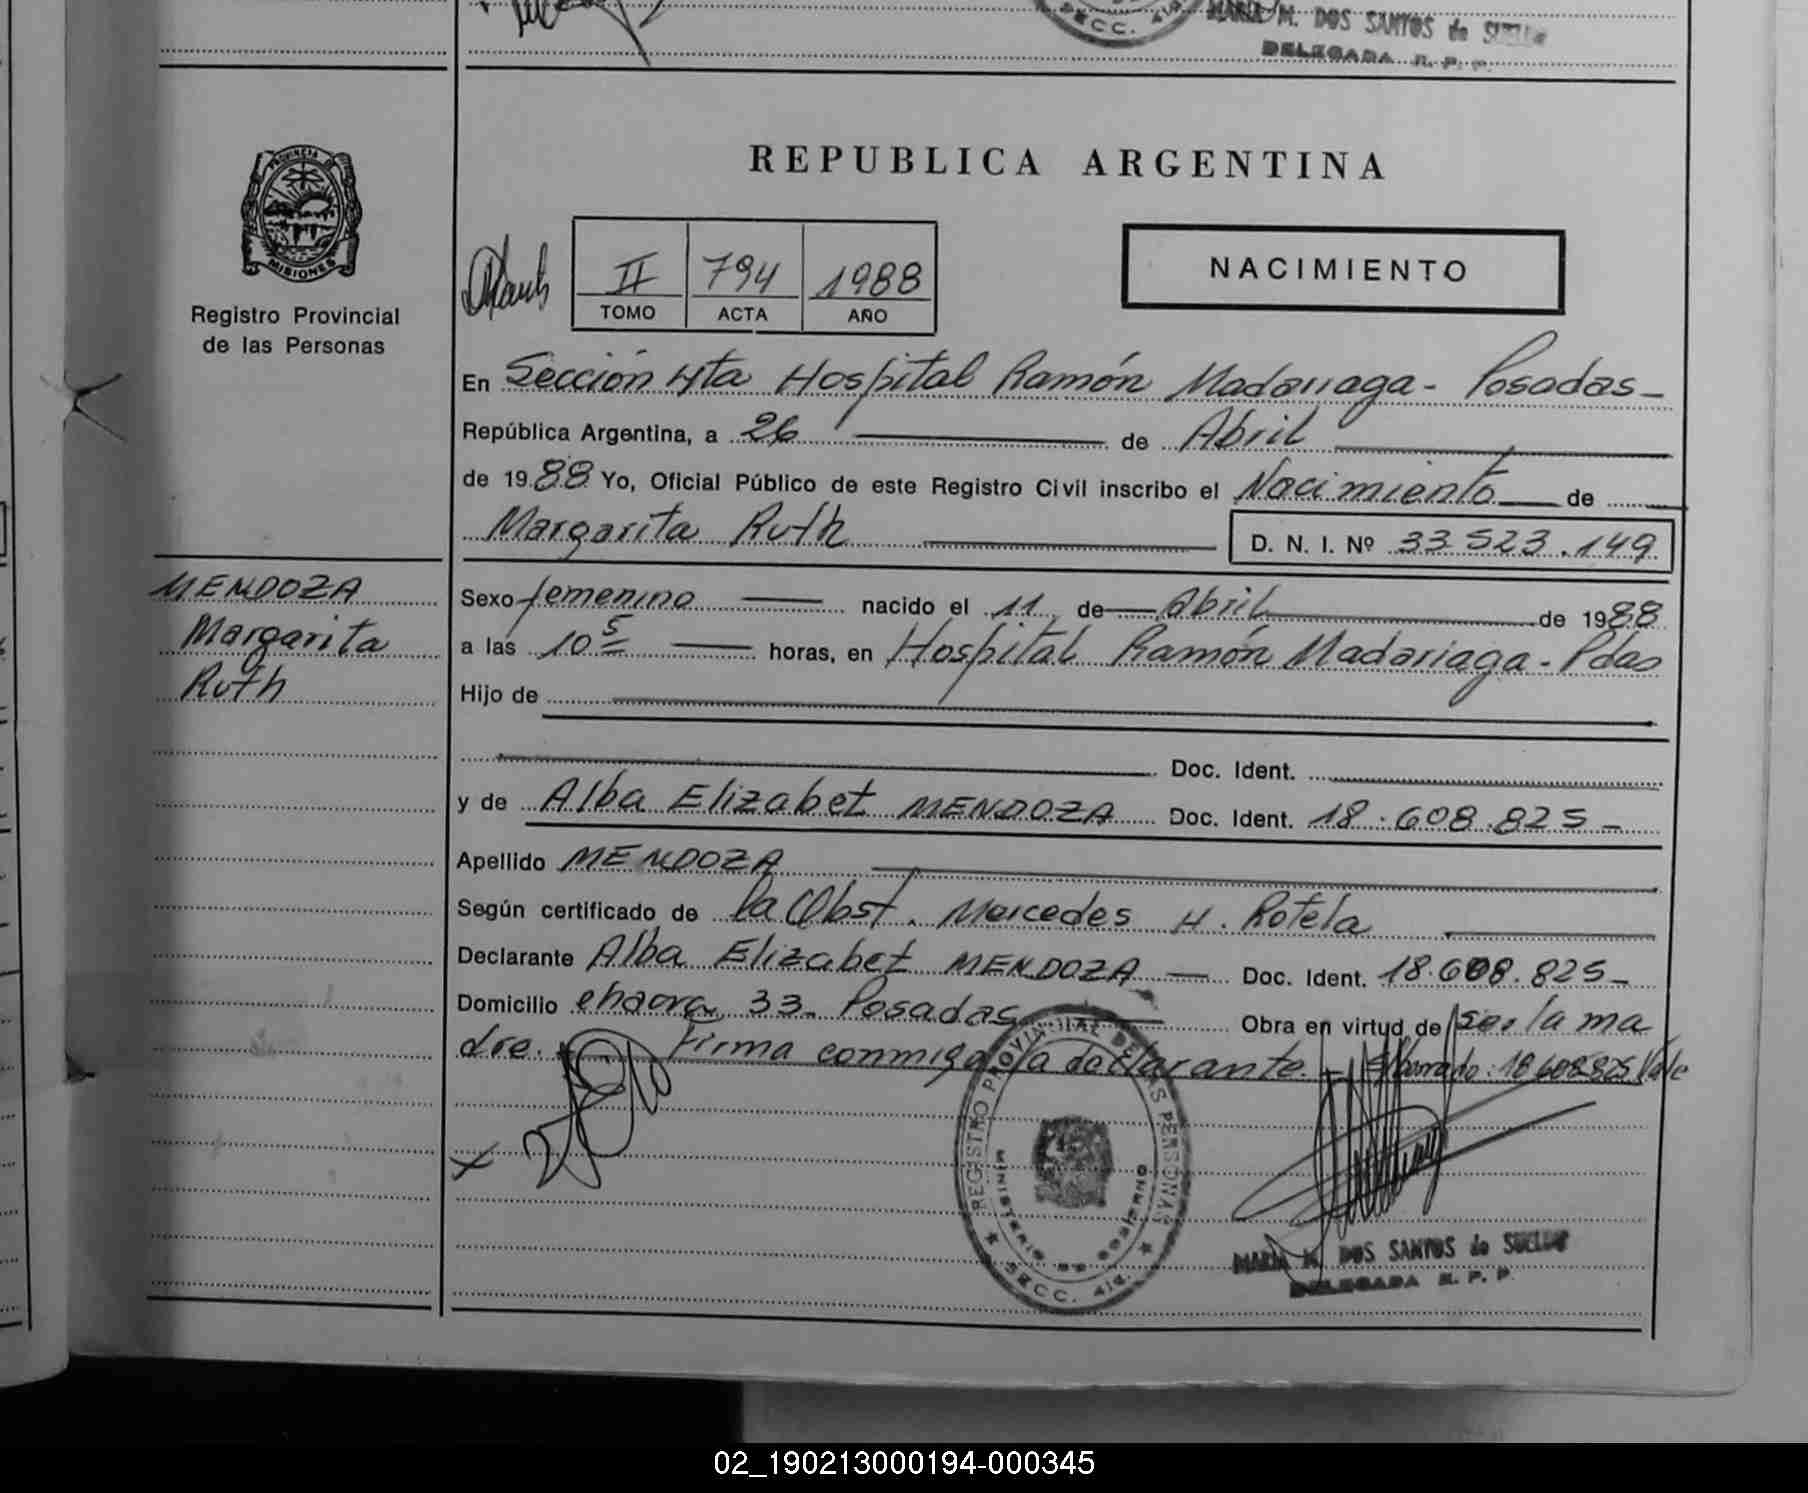 MARIA M. DOS SANTOS de SUELDO
SECC. 4ta.
DELEGADA R. P. P.
PROVINCIA
MISIONES
Registro Provincial
de las Personas
MENDOZA
Margarita
Ruth
REPUBLICA ARGENTINA
II 794 1988
TOMO ACTA AÑO
NACIMIENTO
En Sección 4ta Hospital Ramón Madariaga - Posadas -
República Argentina, a 26 de Abril
de 1988 Yo, Oficial Público de este Registro Civil inscribo el Nacimiento de
Margarita Ruth D. N. I. Nº 33.523.149
Sexo femenino nacido el 11 de Abril de 1988
a las 10 5 horas, en Hospital Ramón Madariaga - Pdas
Hijo de
Doc. Ident.
y de Alba Elizabet MENDOZA Doc. Ident. 18.608.825 -
Apellido MENDOZA
Según certificado de la Obst. Mercedes H. Rotela
Declarante Alba Elizabet MENDOZA Doc. Ident. 18.608.825 -
Domicilio chacra 33 - Posadas Obra en virtud de ser la ma
dre. Firma conmigo la declarante. - E/borrado: 18.608.825 Vale
REGISTRO PROVINCIAL DE LAS PERSONAS
MINISTERIO DE GOBIERNO
SECC. 4ta.
MARIA M. DOS SANTOS de SUELDO
DELEGADA R. P. P.
02_190213000194-000345